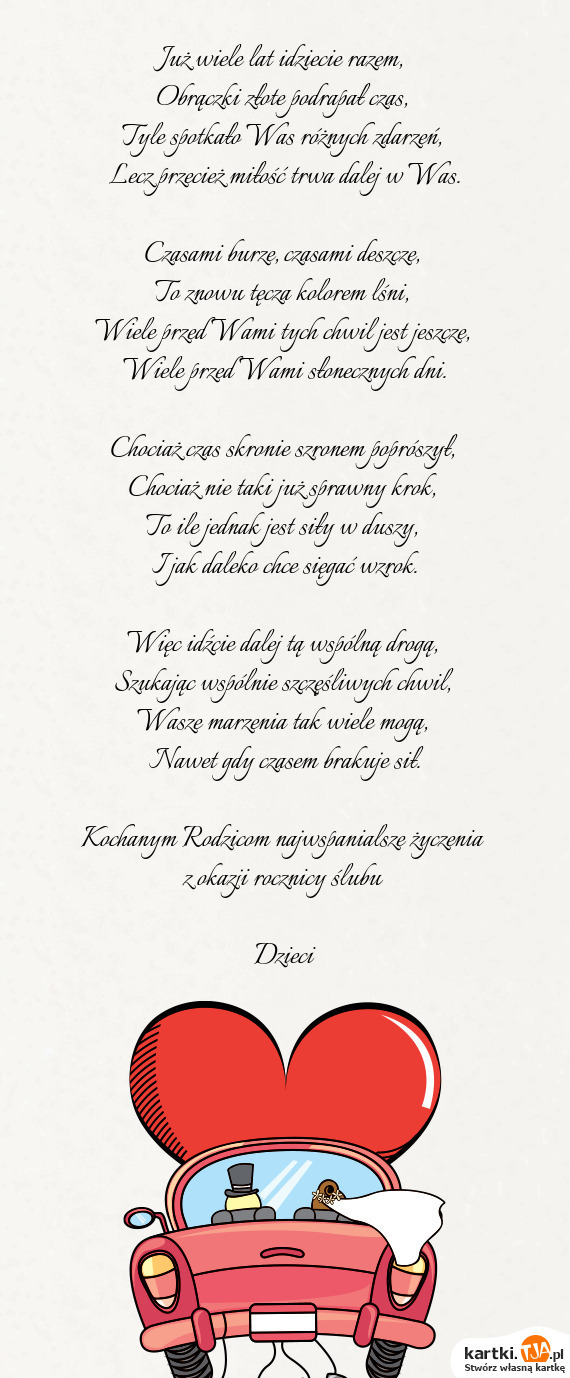 Już wiele lat idziecie razem,
Obrączki złote podrapał czas,
Tyle spotkało Was różnych zdarzeń,
Lecz przecież miłość trwa dalej w Was.
Czasami burze, czasami deszcze,
To znowu tęcza kolorem lśni,
Wiele przed Wami tych chwil jest jeszcze,
Wiele przed Wami słonecznych dni.
Chociaż czas skronie szronem poprószył,
Chociaż nie taki już sprawny krok,
To ile jednak jest siły w duszy,
I jak daleko chce sięgać wzrok.
Więc idźcie dalej tą wspólną drogą,
Szukając wspólnie szczęśliwych chwil,
Wasze marzenia tak wiele mogą,
Nawet gdy czasem brakuje sił.
Kochanym Rodzicom najwspanialsze życzenia
z okazji rocznicy ślubu
Dzieci
kartki.TJA.pl
Stwórz własną kartkę